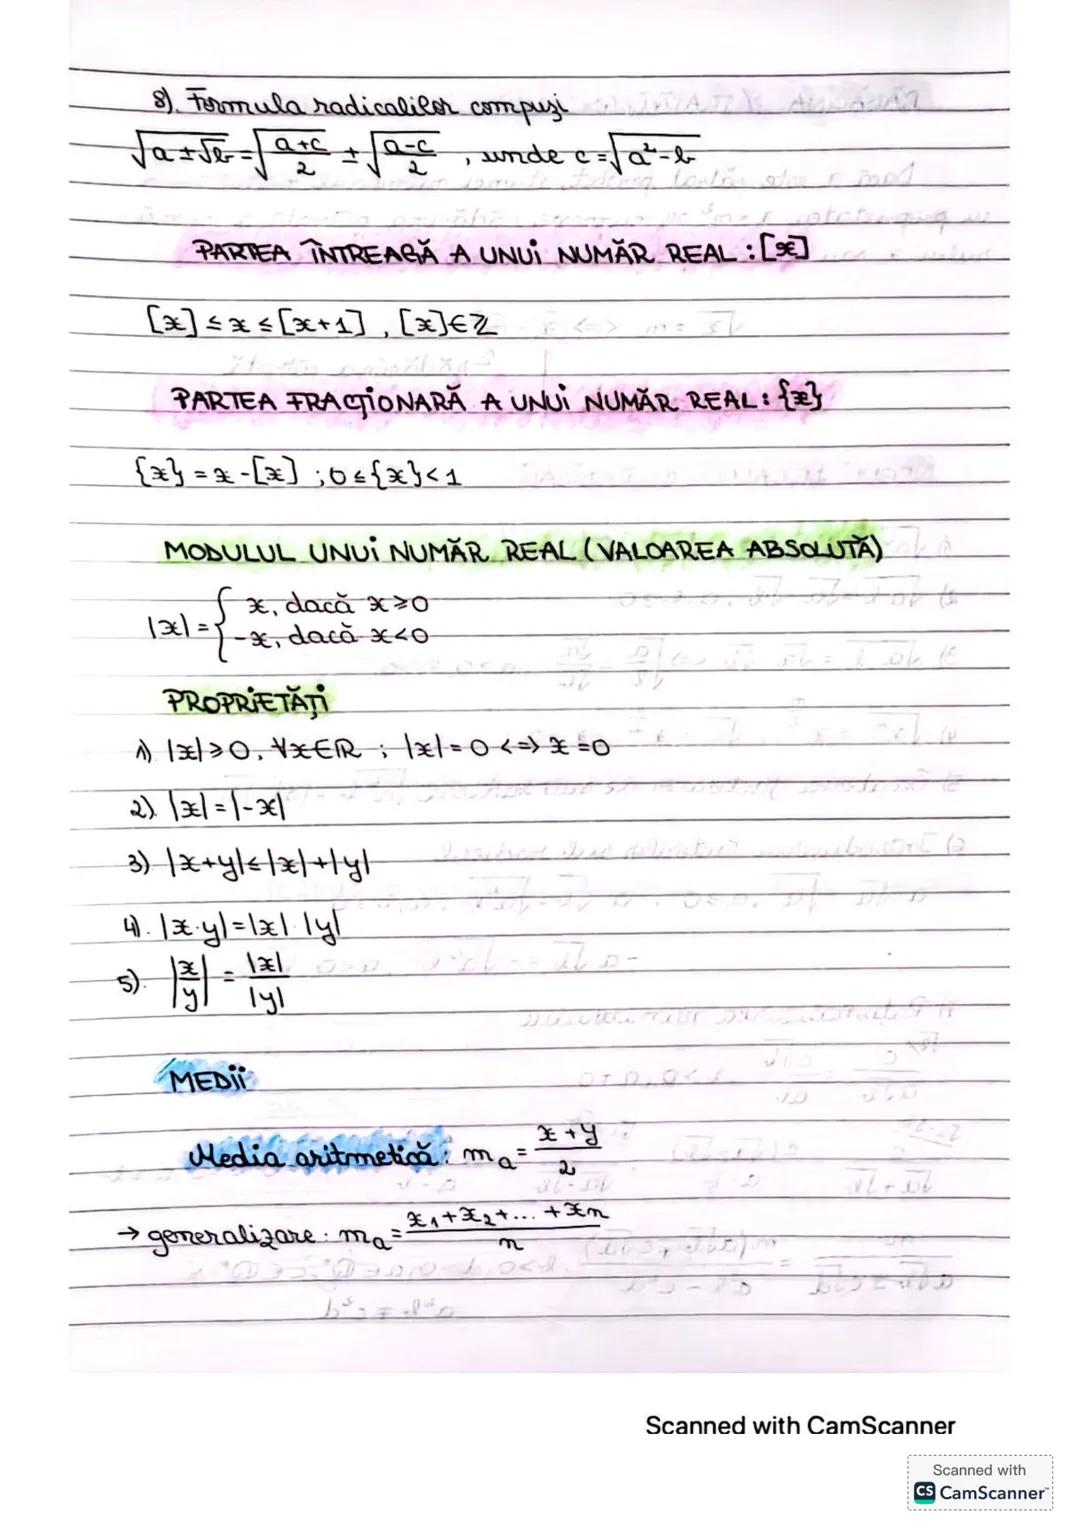 8). Formula radicalilor compuși
√(a±√b) = √((a+c)/2) ± √((a-c)/2) , unde c = √(a²-b)
PARTEA ÎNTREAGĂ A UNUI NUMĂR REAL : [x]
[x] ≤ x ≤ [x+1] , [x] ∈ ℤ
PARTEA FRACȚIONARĂ A UNUI NUMĂR REAL : {x}
{x} = x - [x] ; 0 ≤ {x} < 1
MODULUL UNUI NUMĂR REAL (VALOAREA ABSOLUTĂ)
|x| = { x, dacă x ≥ 0
-x, dacă x < 0
PROPRIETĂȚI
1) |x| ≥ 0, ∀x∈ℝ ; |x| = 0 <=> x = 0
2). |x| = |-x|
3) |x+y| ≤ |x| + |y|
4). |x·y| = |x|·|y|
5). |x/y| = |x|/|y|
MEDII
Media aritmetică : mₐ = (x+y)/2
→ generalizare : mₐ = (x₁+x₂+...+xₙ)/n
Scanned with CamScanner
Scanned with
CS CamScanner™